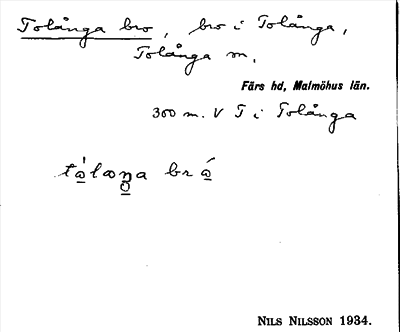 Tolånga bro, bro i Tolånga,
Tolånga m.
Färs hd, Malmöhus län.
300 m. V T i Tolånga
NILS NILSSON 1934.